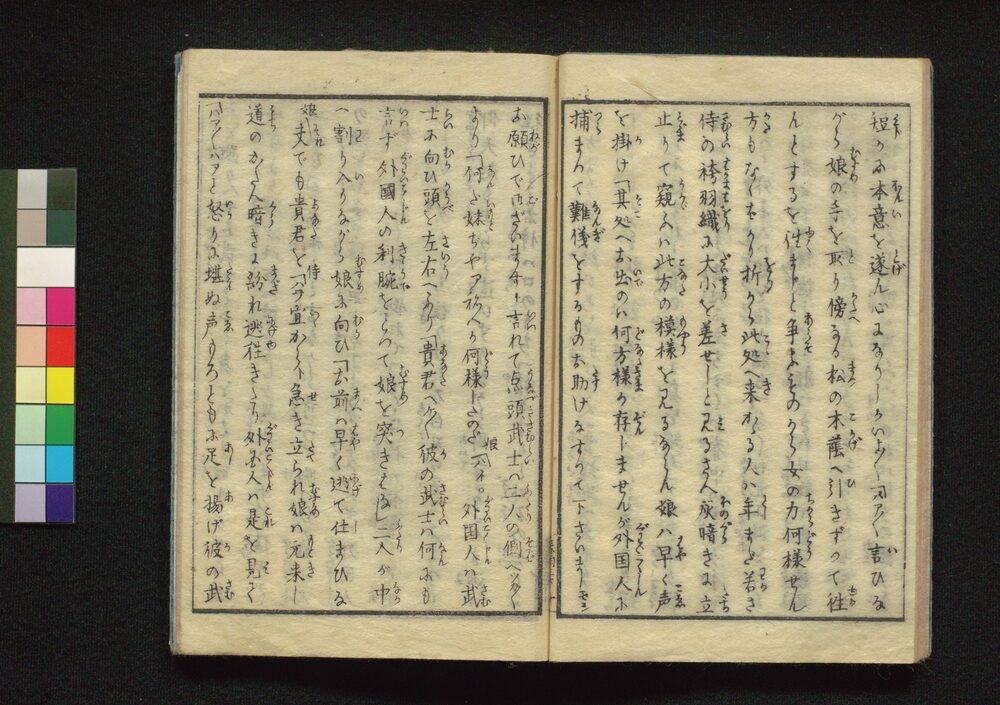 短かの本意を遂ん心よなりしかいよ〳〵因アく言ひな
がら娘の手を取り傍なる松の木蔭へ引きずつて往
んとするを往まじと争ふものから女の力何様せん
方もなくばかり折から此処へ来かゝる人ハ年まだ若き
侍の袴羽織に大小を差せしと見るさへ灰暗きに立
止りて窺へバ此方の模様を見るならん娘ハ早く声
を掛け「其処へお出のハ何方様か存じませんが外国人に
捕まつて難儀をするものお助けなすつて下さいましモシ
お願ひで御ざいますト言れて点頭武士ハ二人の側へツカ〳〵
より「何だ妹ぢやアねへか何様したのだ娘「ハイ。外国人ハ武
士に向ひ頭を左右へふり「貴君へ〳〵彼の武士ハ何にも
言ず外國人の利腕をとつて娘を突きはなし二人が中
へ割り入りながら娘に向ひ「お前ハ早く逃て仕まひな
娘「夫でも貴君を侍「ハテ宜からト急き立られ娘ハ元来し
道のかたへ暗きに紛れ逃往きたり外国人ハ是を見て
「ハアーハアと怒りに堪ぬ声もろともに足を揚げ彼の武